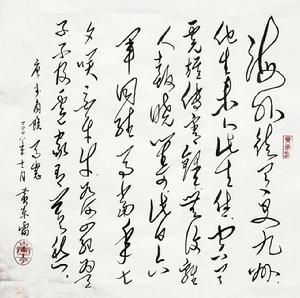 海外徒闻更九州
他生未卜此生休空闻
虎旅传宵柝无复鸡
人报晓筹此日六
军同驻马当时七
夕笑牵牛如何四纪为天
子不及卢家有莫愁
唐李商隐马嵬
二〇〇八年十一月